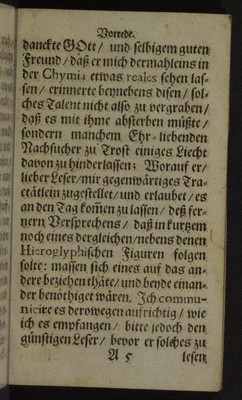 Vorrede.
danckte GOtt/ und selbigem guten
Freund/ daß er mich dermahleins in
der Chymia etwas reales sehen las-
sen/ erinnerte beynebens disen/ sol-
ches Talent nicht also zu vergraben/
daß es mit ihme absterben müßte/
sondern manchem Ehr-liebenden
Nachsucher zu Trost einiges Liecht
davon zu hinderlassen; Worauf er/
lieber Leser/ mir gegenwärtiges Tra-
ctätlein zugestellet/ und erlaubet/ es
an den Tag kom̃en zu lassen/ deß fer-
nern Versprechens/ daß in kurtzem
noch eines dergleichen/ nebens denen
Hieroglyphischen Figuren folgen
solte: massen sich eines auf das an-
dere beziehen thäte/ und beyde einan-
der benöthiget wären. Ich commu-
nicire es derowegen aufrichtig/ wie
ich es empfangen/ bitte jedoch den
günstigen Leser/ bevor er solches zu
A 5 lesen